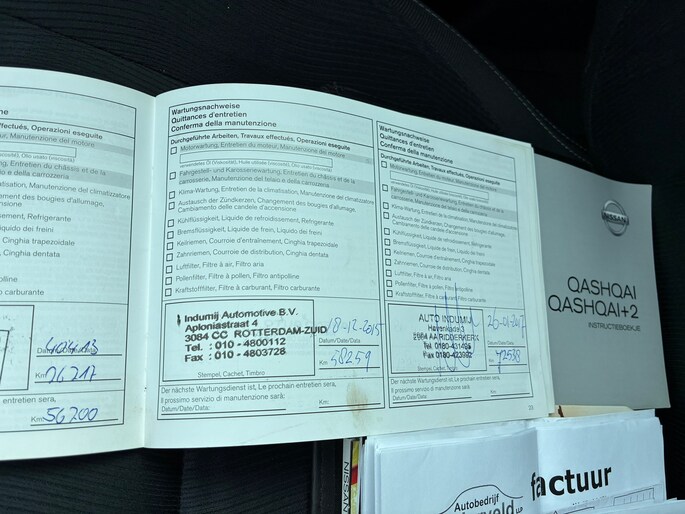 ffectués, Operazioni eseguite
Manutenzione del motore
Olio usato (viscosità)
Entretien du châssis et de la
o e della carrozzeria
isation, Manutenzione del climatizzatore
ment des bougies d'allumage,
accensione
efroidissement, Refrigerante
iquido dei freini
nt, Cinghia trapezoidale
Cinghia dentata
carburante
Datum/Date/Data:
Km:
26217
entretien sera,
Km:
56200
Wartungsnachweise
Quittances d'entretien
Conferma della manutenzione
Durchgeführte Arbeiten, Travaux effectués, Operazioni eseguite
Motorwartung, Entretien du moteur, Manutenzione del motore
Verwendetes Öl (Viscosität), Huile utilisée (viscosité), Olio usato (viscosità)
Fahrgestell- und Karosseriewartung, Entretien du châssis et de la
carrosserie, Manutenzione del telaio e della carrozzeria
Klima-Wartung, Entretien de la climatisation, Manutenzione del climatizzatore
Austausch der Zündkerzen, Changement des bougies d'allumage,
Cambiamento delle candele d'accensione
Kühlflüssigkeit, Liquide de refroidissement, Refrigerante
Bremsflüssigkeit, Liquide de frein, Liquido dei freni
Keilriemen, Courroie d'entraînement, Cinghia trapezoidale
Zahnriemen, Courroie de distribution, Cinghia dentata
Luftfilter, Filtre à air, Filtro aria
Pollenfilter, Filtre à pollen, Filtro antipolline
Kraftstofffilter, Filtre à carburant, Filtro carburante
Indumij Automotive B.V.
Aploniastraat 4
3084 CC ROTTERDAM-ZUID
Tel. : 010 - 4800112
Fax : 010 - 4803728
Stempel, Cachet, Timbro
18-12-2015
Datum/Date/Data:
Km:
58259
Der nächste Wartungsdienst ist, Le prochain entretien sera,
Il prossimo servizio di manutenzione sarà:
Datum/Date/Data:
Km:
Wartungsnachweise
Quittances d'entretien
Conferma della manutenzione
Durchgeführte Arbeiten, Travaux effectués, Operazioni eseguite
Motorwartung, Entretien du moteur, Manutenzione del motore
Fahrgestell- und Karosseriewartung, Entretien du châssis et de la
carrosserie, Manutenzione del telaio e della carrozzeria
Klima-Wartung, Entretien de la climatisation, Manutenzione del climatizzatore
Austausch der Zündkerzen, Changement des bougies d'allumage,
Cambiamento delle candele d'accensione
Kühlflüssigkeit, Liquide de refroidissement, Refrigerante
Bremsflüssigkeit, Liquide de frein, Liquido dei freni
Keilriemen, Courroie d'entraînement, Cinghia trapezoidale
Zahnriemen, Courroie de distribution, Cinghia dentata
Luftfilter, Filtre à air, Filtro aria
Pollenfilter, Filtre à pollen, Filtro antipolline
Kraftstofffilter, Filtre à carburant, Filtro carburante
AUTO INDUMIJ
2984 AA RIDDERKERK
Tel. 0180-431496
Fax 0180-423992
Stempel, Cachet, Timbro
26-01-2017
Datum/Date/Data:
Km:
72588
Der nächste Wartungsdienst ist, Le prochain entretien sera,
Il prossimo servizio di manutenzione sarà:
Datum/Date/Data:
Km:
NISSAN
QASHQAI
QASHQAI+2
INSTRUCTIEBOEKJE
NISSAN
Autobedrijf
factuur